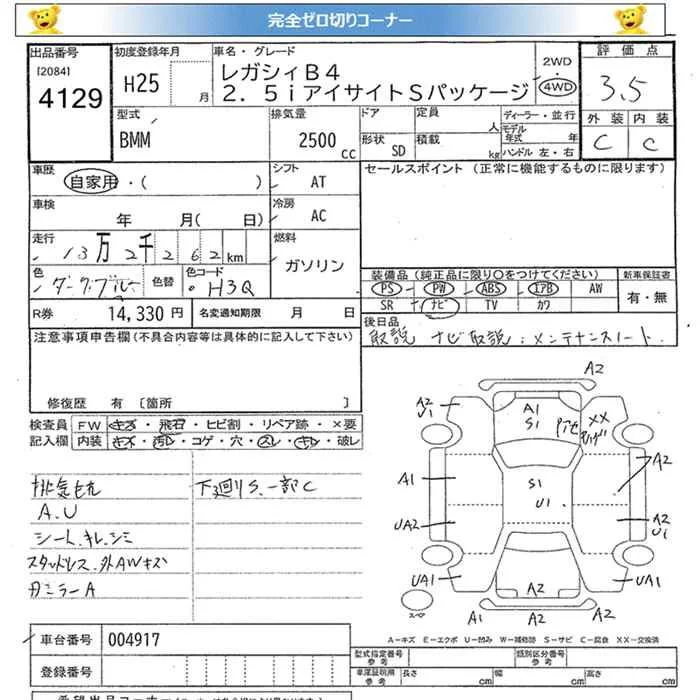 完全ゼロ切りコーナー
出品番号 初度登録年月 車名・グレード 2WD 評価点
[2084] レガシィB4
4129 H25 月 2.5iアイサイトSパッケージ 4WD 3.5
型式 排気量 ドア 定員 人 ディーラー・並行 外装 内装
BMM 2500cc 形状 SD 積載 kg モデル年式 年 C C
ハンドル 左・右
車歴 自家用・( ) シフト AT セールスポイント (正常に機能するものに限ります)
車検 年 月( 日) 冷房 AC
走行 13万2千262km 燃料 ガソリン
色 ダークブルー 色替 色コード H3Q
装備品(純正品に限り○をつけてください) 新車保証書
PS PW ABS エアB AW 有・無
SR ナビ TV カワ
R券 14,330円 名変通知期限 月 日
後日品
取説 ナビ取説 メンテナンスノート
注意事項申告欄(不具合内容等は具体的に記入して下さい)
修復歴 有 〔箇所 〕
検査員 FW キズ・飛石・ヒビ割・リペア跡・×要
記入欄 内装 キズ・汚レ・コゲ・穴・スレ・キレ・破レ
排気セル 下廻りS、一部C
A.U
シートキレ、シミ
スタッドレス、外AWキズ
ガミラーA
A2
A2 U1 A1 S1 XX
A1 S1 U1 A2
UA2 A2 U1
UA1 A2 UA1
スペア A1 A2 A2
A-キズ E-エクボ U-凹み W-補修跡 S-サビ C-腐食 XX-交換済
車台番号 004917
型式指定番号 参考 類別区分番号 参考
登録番号
車庫証明用 参考 長さ cm 幅 cm 高さ cm